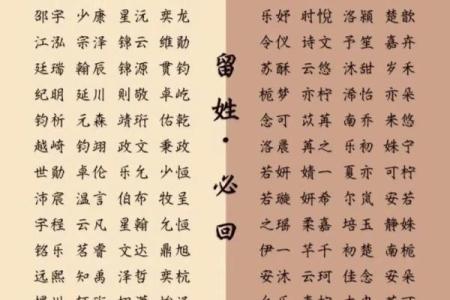 邵宇 少康 星沅 奕龙
江泓 宗泽 锦云 维勋
廷瑞 翰辰 锦源 贯钧
纪明 延川 则敬 卓屹
钧析 元森 靖珩 佑乾
越崎 钧翊 政文 秉忱
世勋 卓伦 乐允 少恒
沛宸 温言 伯布 牧呈
宇程 云凡 星翰 允恒
铭乐 茗睿 文达 鼎旭
远熙 知禹 泽哲 奕杭
留姓·必回
乐妤 时悦 洛颍 楚歆
令仪 诗文 予笙 嘉卉
苏酥 云悠 沐甜 岁禾
栀梦 亦柠 浠怡 亦朵
念可 苡苒 南乔 来悠
洛晨 苒之 乐初 姝宁
若妍 婧一 夏亦 可柠
若璇 妍希 尔岚 安若
之瑶 柔嘉 培玉 静姝
伊一 芊千 初楚 南栀
安沐 云珂 佳念 安柔